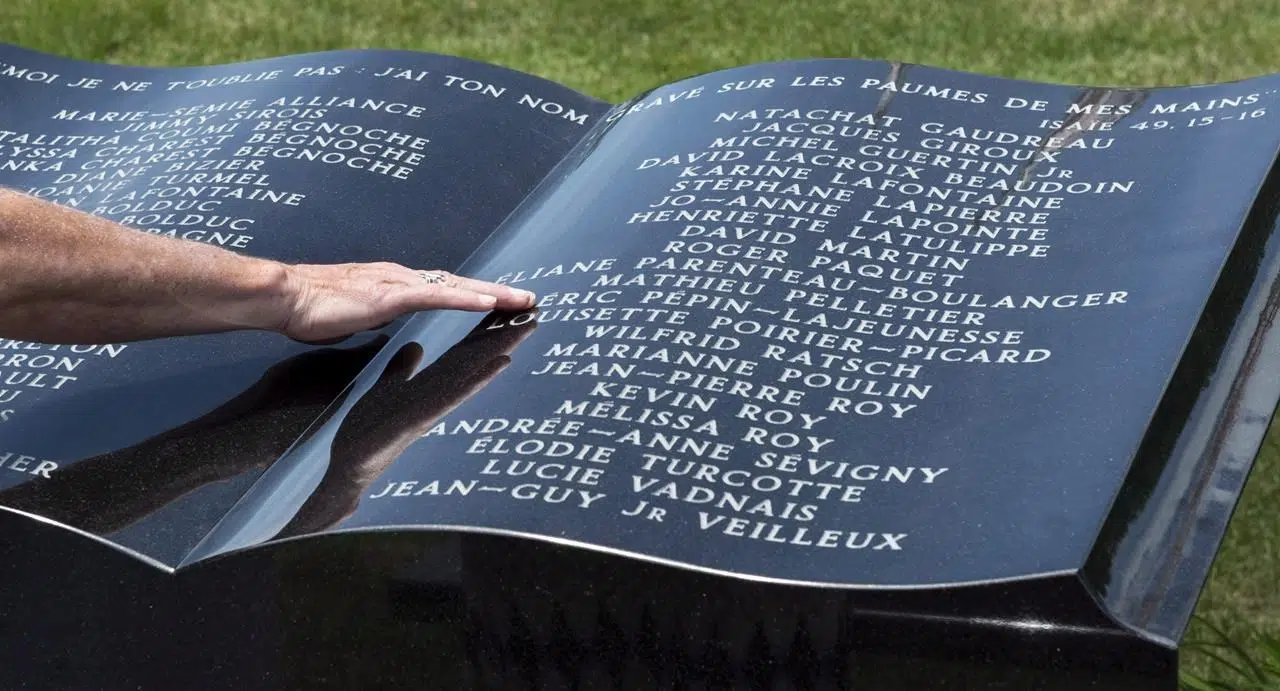 MOI JE NE T'OUBLIE PAS : J'AI TON NOM
MARIE-SÉMIE ALLIANCE
JIMMY SIROIS
TALITHA COUMI BÉGNOCHE
CHAREST BÉGNOCHE
CHAREST BÉGNOCHE
DIANE BIZIER
JOANIE TURMEL
LAFONTAINE
BOLDUC
BOLDUC
GRAVÉ SUR LES PAUMES DE MES MAINS"
ISAÏE 49, 15-16
NATACHAT GAUDREAU
JACQUES GIROUX
MICHEL GUERTIN JR
DAVID LACROIX BEAUDOIN
KARINE LAFONTAINE
STÉPHANE LAPIERRE
JO-ANNIE LAPOINTE
HENRIETTE LATULIPPE
DAVID MARTIN
ROGER PAQUET
ÉLIANE PARENTEAU-BOULANGER
MATHIEU PELLETIER
ÉRIC PÉPIN-LAJEUNESSE
LOUISETTE POIRIER-PICARD
WILFRID RATSCH
MARIANNE POULIN
JEAN-PIERRE ROY
KEVIN ROY
MÉLISSA ROY
ANDRÉE-ANNE SÉVIGNY
ÉLODIE TURCOTTE
LUCIE VADNAIS
JEAN-GUY JR VEILLEUX